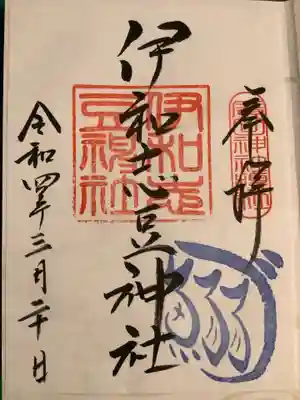 奉拝
伊和志豆神社
伊和志
豆神社
令和四年三月二十日
鰯づ